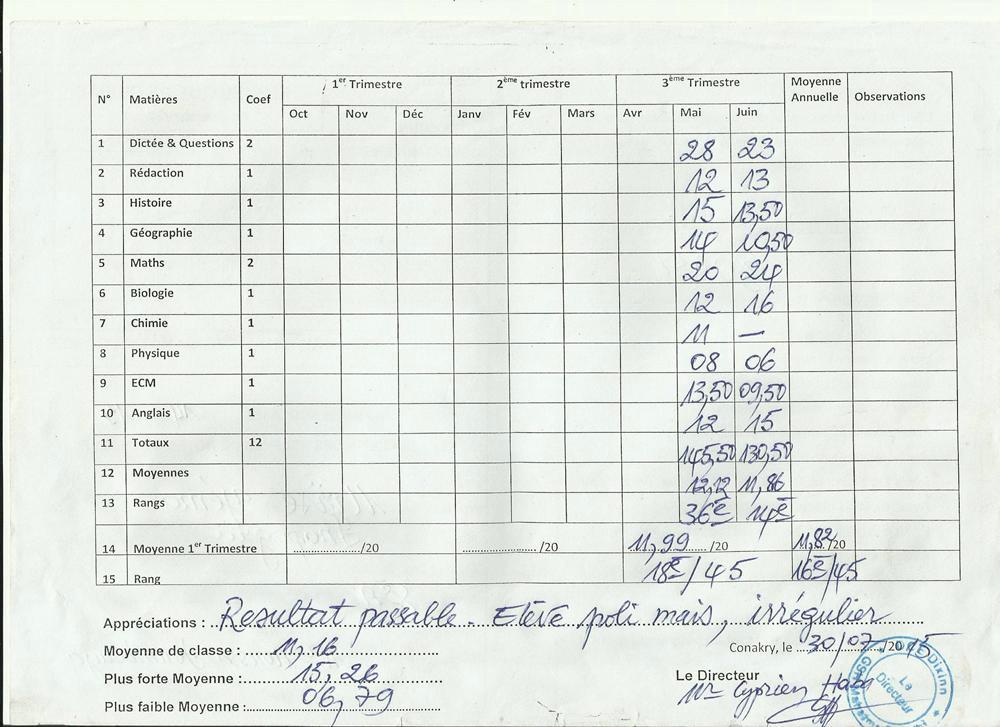 N° Matières Coef 1er Trimestre 2ème trimestre 3ème Trimestre Moyenne Annuelle Observations
Oct Nov Déc Janv Fév Mars Avr Mai Juin
1 Dictée & Questions 2 28 23
2 Rédaction 1 12 13
3 Histoire 1 15 13,50
4 Géographie 1 14 10,50
5 Maths 2 20 24
6 Biologie 1 12 16
7 Chimie 1 11 —
8 Physique 1 08 06
9 ECM 1 13,50 09,50
10 Anglais 1 12 15
11 Totaux 12 145,50 130,50
12 Moyennes 12,12 11,86
13 Rangs 36e 14e
14 Moyenne 1er Trimestre ……………………/20 ……………………… /20 11,99 /20 11,82/20
15 Rang 18e/45 16e/45
Appréciations : Resultat passable. Elève poli mais, irrégulier
Moyenne de classe : 11,16
Conakry, le 30/07/2015
Plus forte Moyenne : 15,26
Le Directeur
Plus faible Moyenne : 06,79
Mr Cyprien
Le Directeur
Dixinn